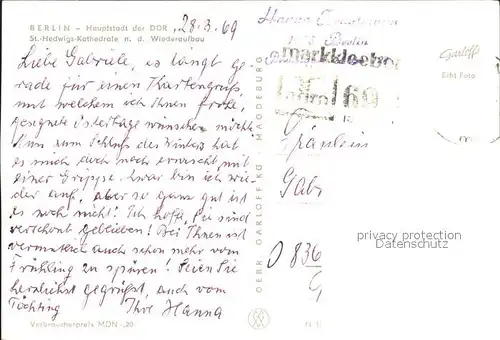 BERLIN – Hauptstadt der DDR, 28.3.69
St.-Hedwigs-Kathedrale n. d. Wiederaufbau
Liebe Gabriele, es langt ge-
rade für einen Kartengruß,
mit welchem ich Ihnen frohe,
gesegnete Ostertage wünschen möchte.
Nun zum Schluß des Winters hat
es mich auch noch erwischt mit
einer Grippe. Zwar bin ich wie-
der auf, aber so ganz gut ist
es noch nicht! Ich hoffe, Sie sind
verschont geblieben! Bei Ihnen ist
vermutlich auch schon mehr vom
Frühling zu spüren! Seien Sie
herzlichst gegrüßt, auch vom
Töchting Ihre Hanna
Verbraucherpreis MDN -,20
GEBR. GARLOFF KG. MAGDEBURG
Hanna
Berlin
markkleeberg
agra 69
Garloff
Echt Foto
Fräulein
Gab
privacy protection
Datenschutz
D 836
G